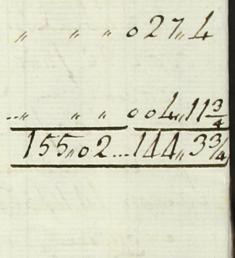 „ „ „ 027„4
...„ „ „ 004„11¾
155„02...144„3¾